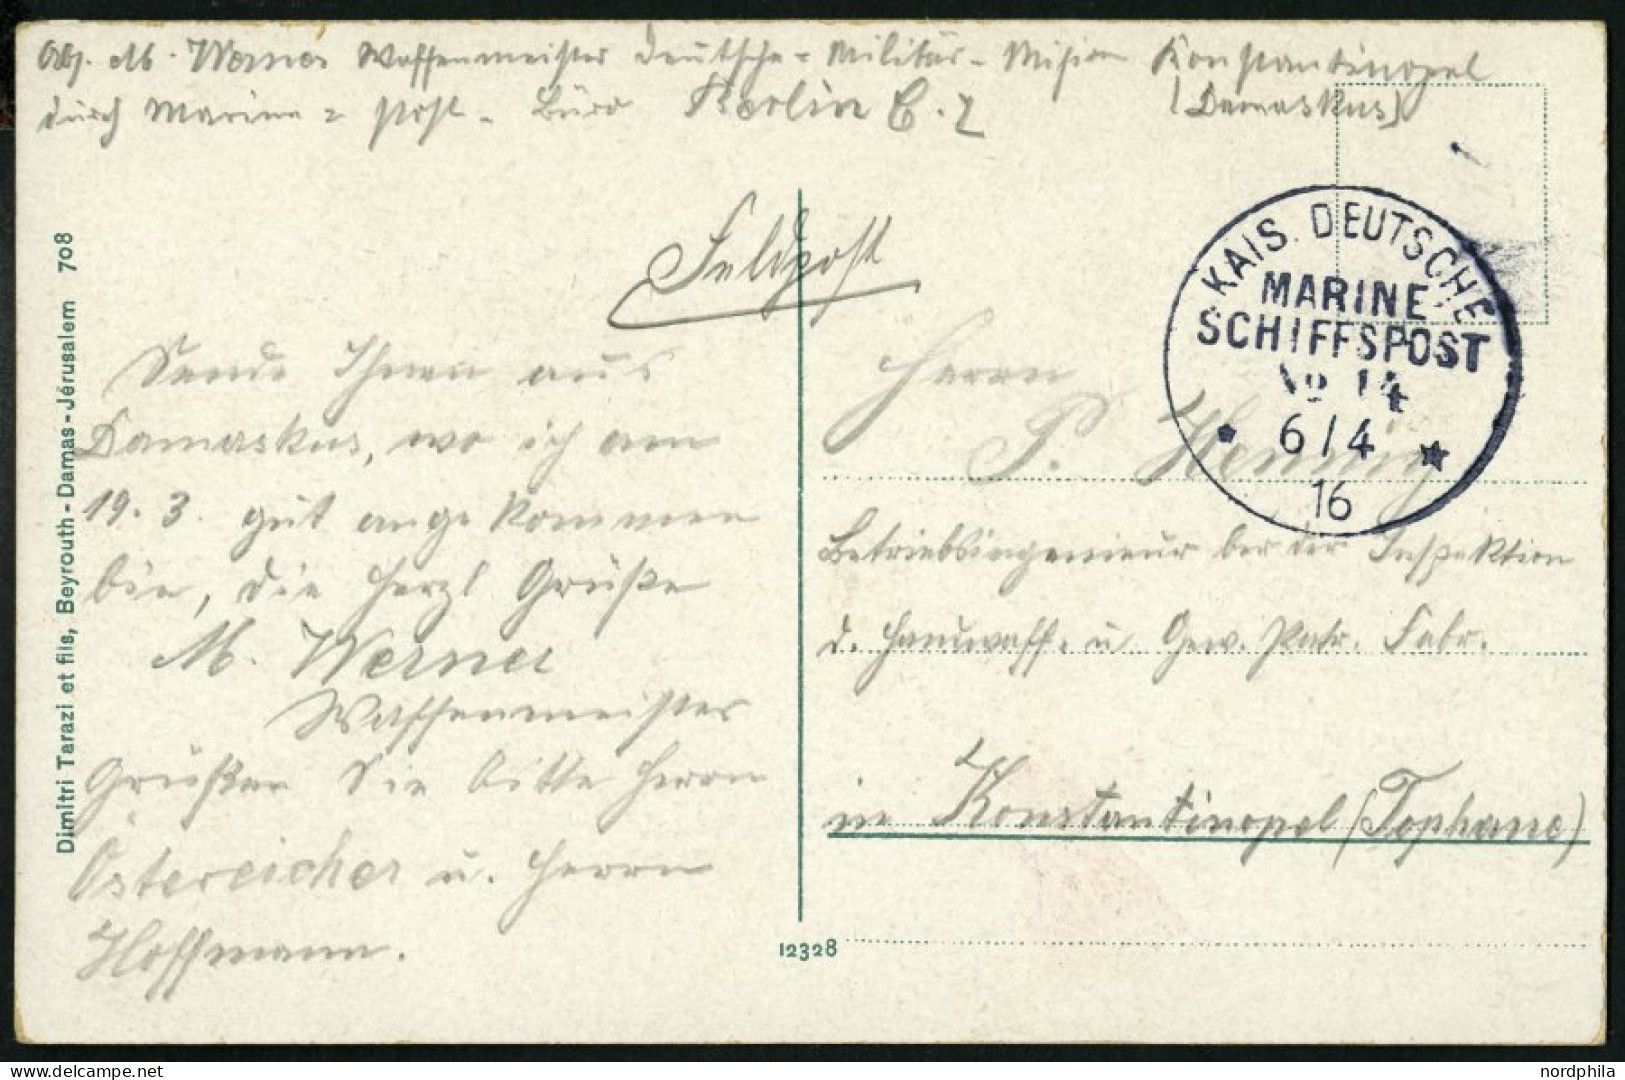 Abs. M. Werner Waffenmeister Deutsche - Militär - Mision Konstantinopel
durch Marine = Post - Büro Berlin C. 2 (Damaskus)
Feldpost
KAIS. DEUTSCHE
MARINE
SCHIFFSPOST
No 14
6/4
16
Dimitri Tarazi et fils, Beyrouth - Damas - Jérusalem 708
Sende Ihnen aus
Damaskus, wo ich am
19. 3. gut angekommen
bin, die herzl Grüße
M. Werner
Waffenmeister
Grüßen Sie bitte Herrn
Östereicher u. Herrn
Hoffmann.
Herrn
P. Hennig
Betriebsingenieur bei der Inspektion
d. Handwaff. u. Gew. Patr. Fabr.
in Konstantinopel (Tophane)
12328
© Delcampe.net
nordphila